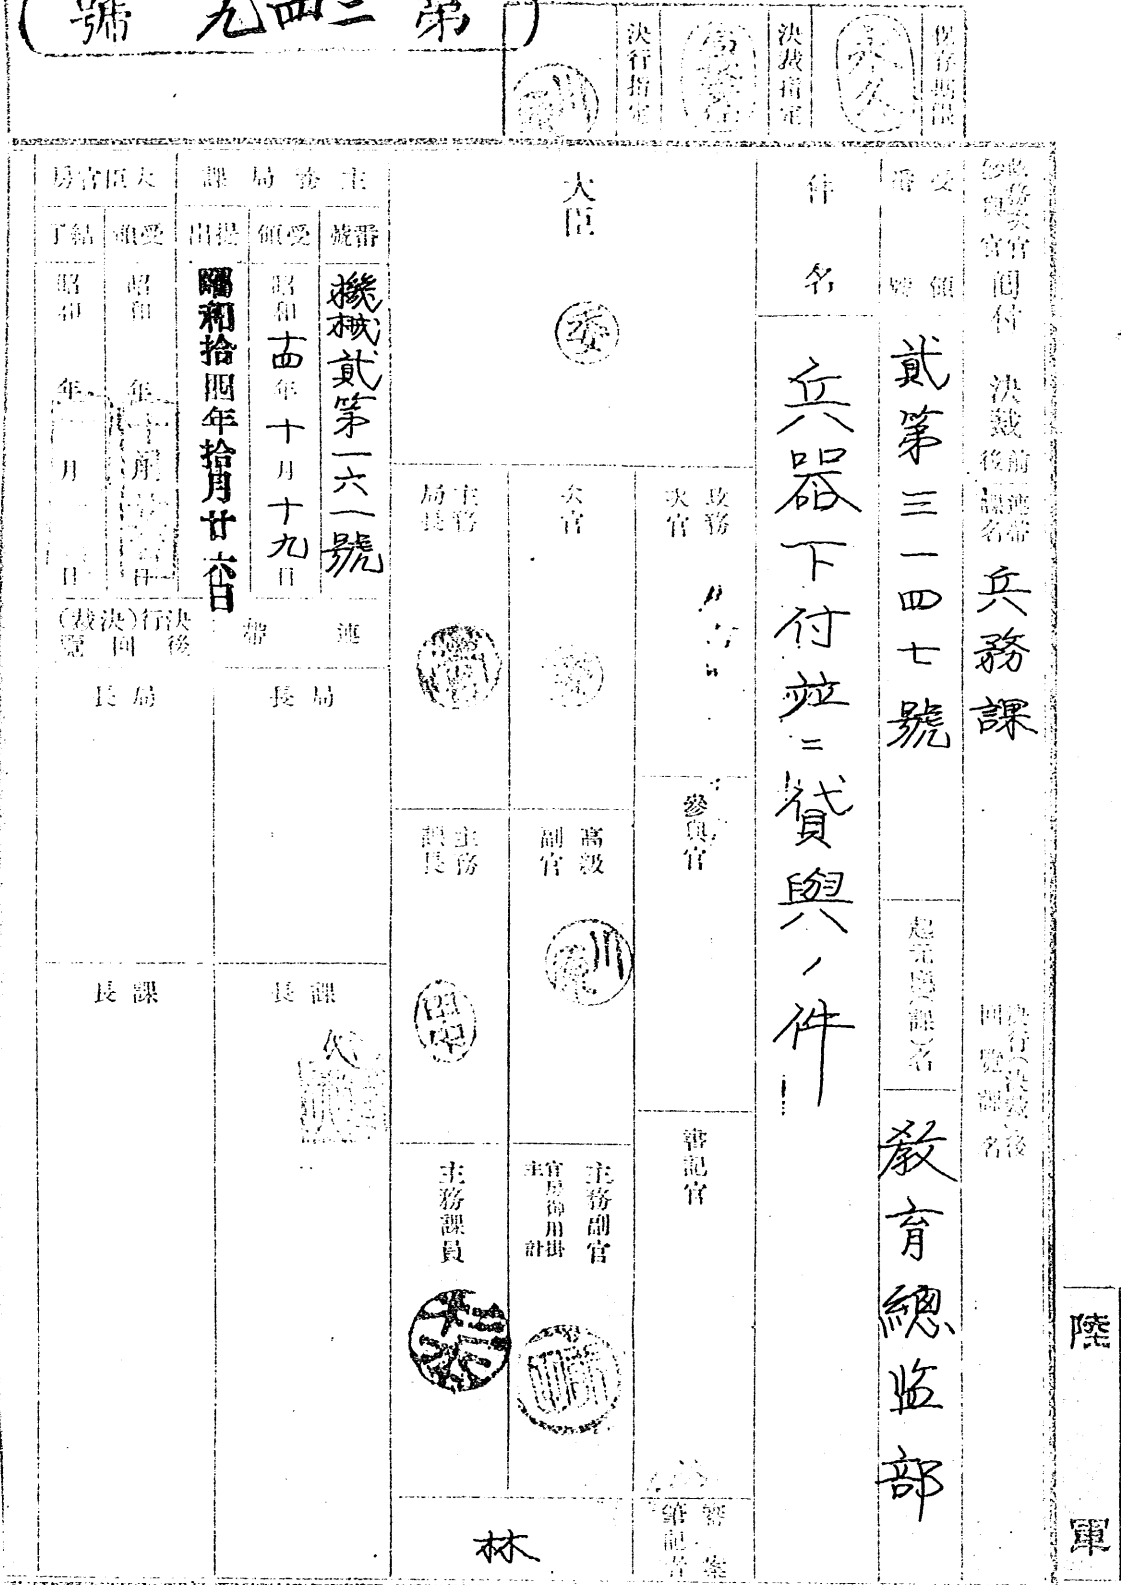 第二四九號
保存期限
永久
決裁指定
決行指定
政務次官
參與官
回付
決裁
前
後
連帶
課名
兵務課
決行(決裁)後
回覽課名
受領
番號
貳第三一四七號
起元廳(課)名
教育總監部
件名
兵器下付並ニ貸與ノ件
大臣
委
政務
次官
參與官
審記官
審案
筆記者
次官
高級
副官
主務副官
官房御用掛
主計
林
主務
局長
主務
課長
主務課員
主務局課
番號
機械貳第一六一號
受領
昭和十四年十月十九日
提出
昭和拾四年拾月廿六日
大臣官房
受領
昭和 年 月 日
結了
昭和 年 月 日
連帶
局長
課長
代
決行(決裁)
後回覽
局長
課長
陸軍